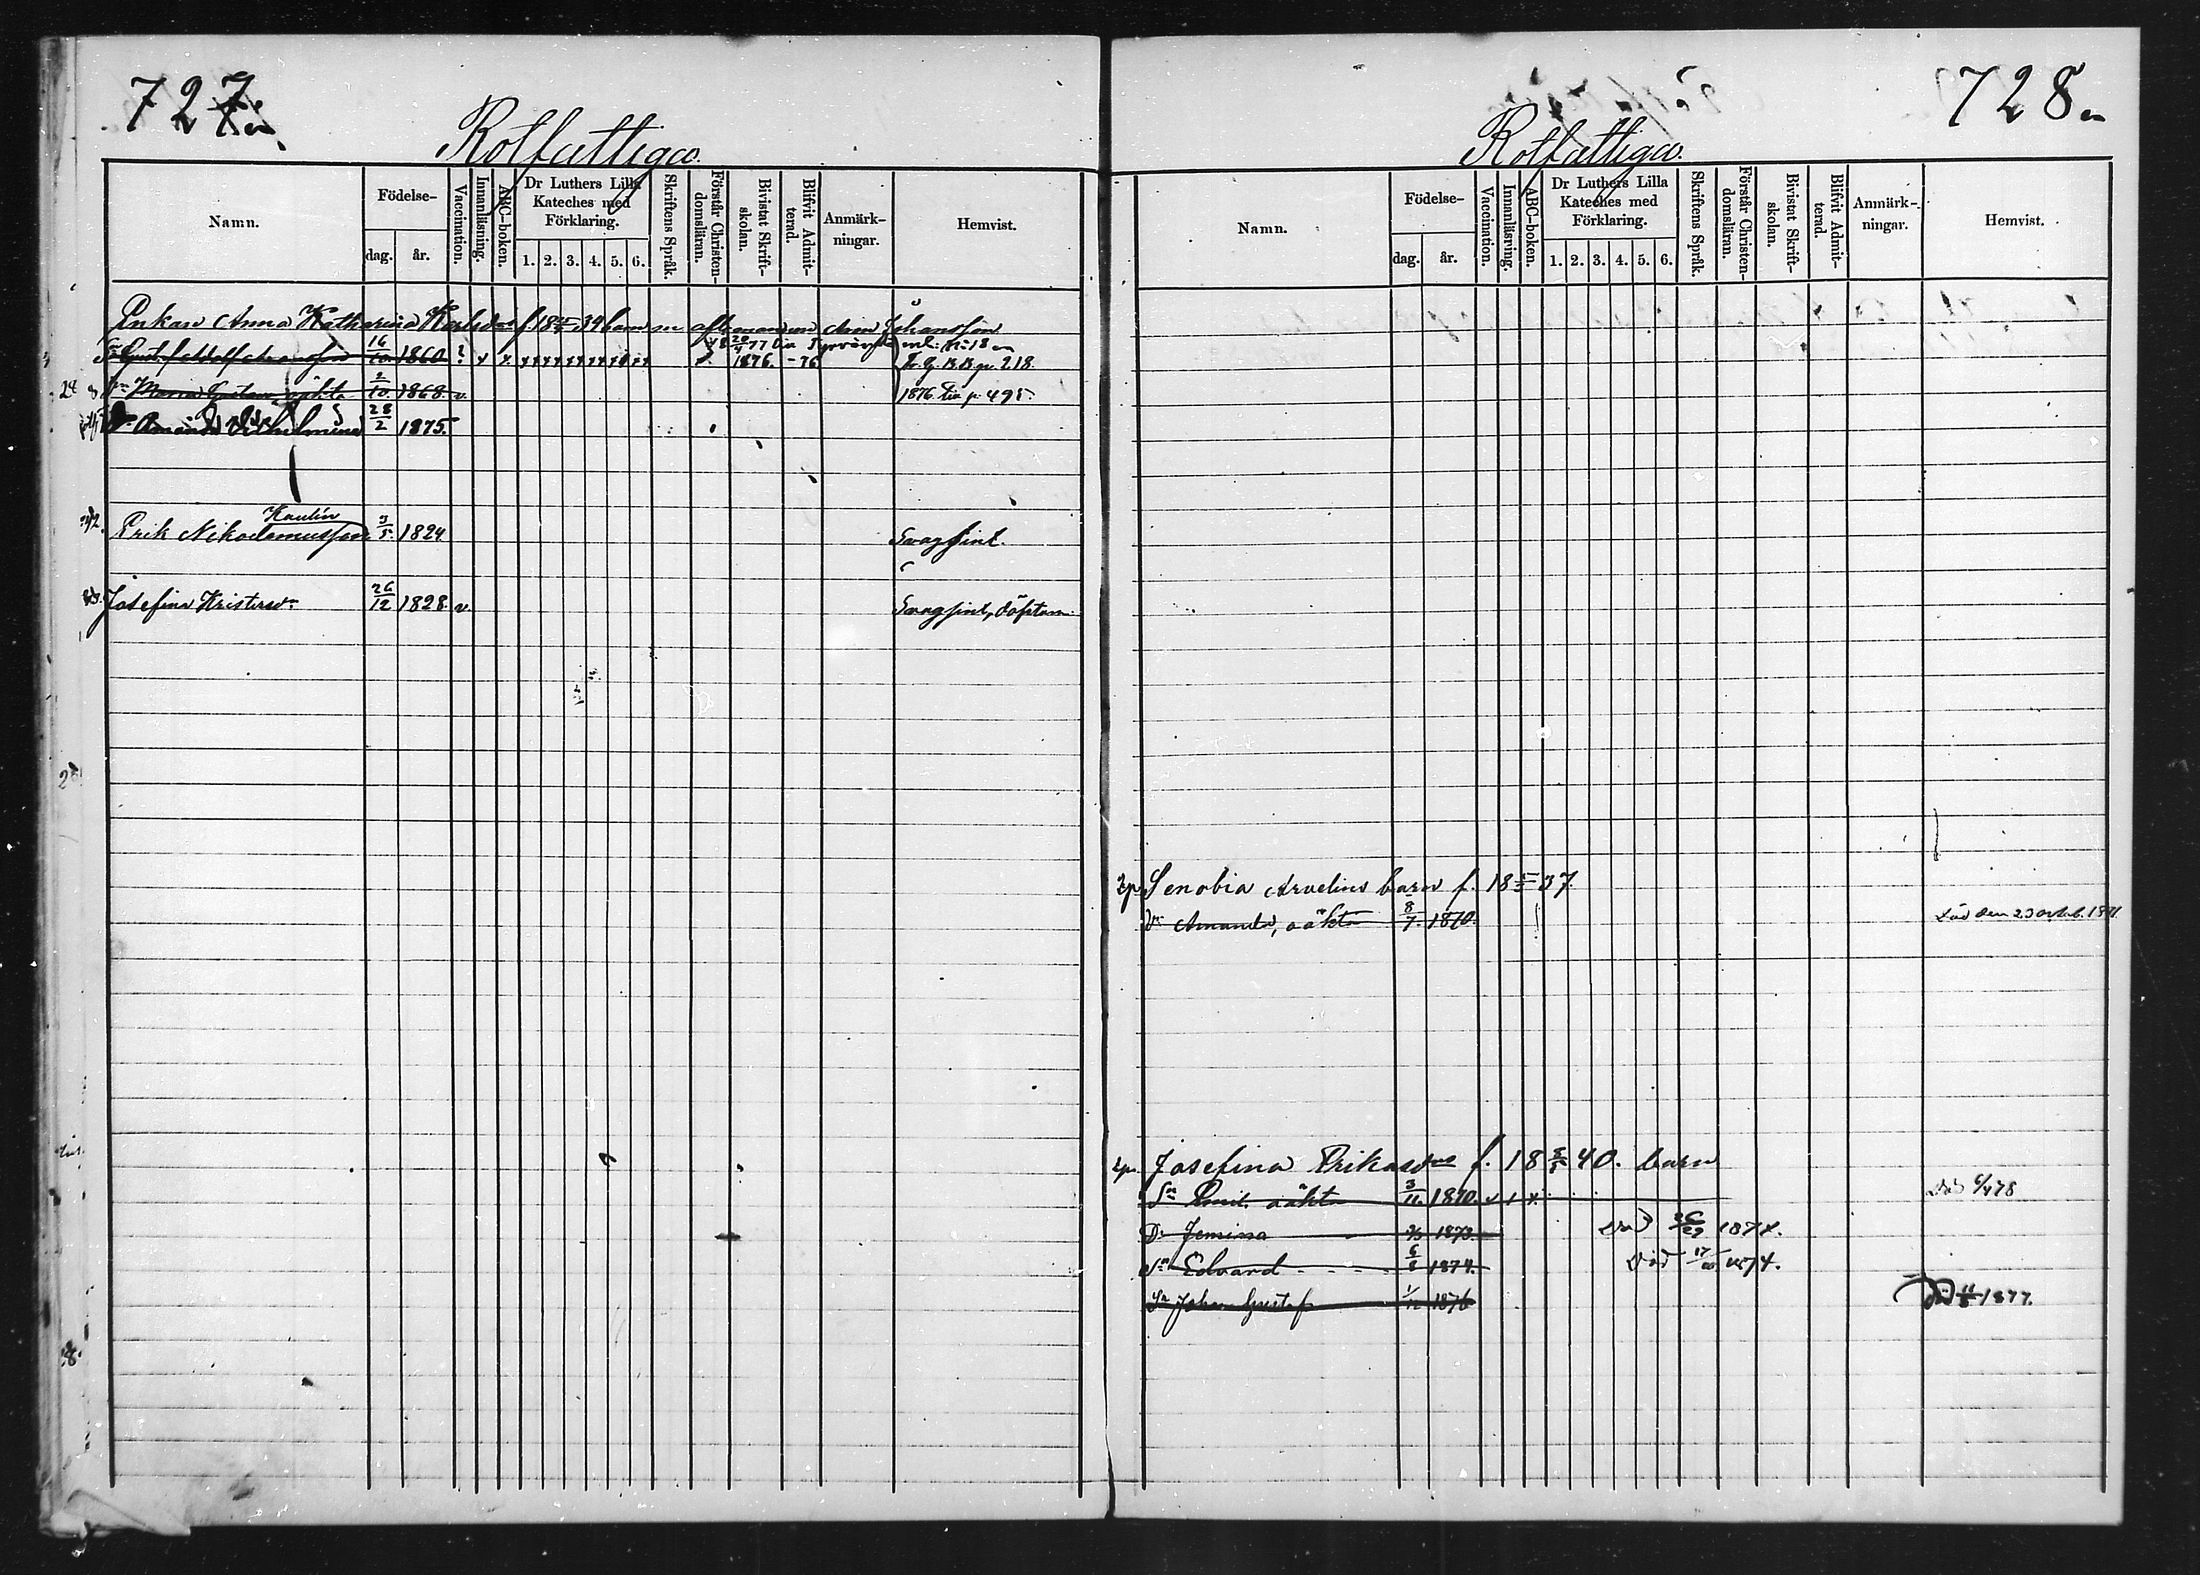 727.
Rotfattiga.
Namn.
Födelse-
dag.
år.
Vaccination.
Innanläsning.
ABC-boken.
Dr Luthers Lilla
Kateches med
Förklaring.
1. 2. 3. 4. 5. 6.
Skriftens Språk.
Förstår Christen-
domsläran.
Bivistat Skrift-
skolan.
Blifvit Admit-
terad.
Anmärk-
ningar.
Hemvist.
Enkan Anna Katharina Karlsd. f. 18 39 barn
Sn Gust. Adolf 16/10 1860 ? x x. 1876. - 76
Dr Maria oäkta 2/10 1868 v. 1876 p. 495
Dr Amanda Vilhelmina 28/2 1875.
Kaulin
Erik Nikodemusson 3/5. 1824 Svagsint.
Josefina Kristersdr 26/12 1828. v. Svagsint, döfstum.
728
Rotfattiga.
Namn.
Födelse-
dag.
år.
Vaccination.
Innanläsning.
ABC-boken.
Dr Luthers Lilla
Kateches med
Förklaring.
1. 2. 3. 4. 5. 6.
Skriftens Språk.
Förstår Christen-
domsläran.
Bivistat Skrift-
skolan.
Blifvit Admit-
terad.
Anmärk-
ningar.
Hemvist.
Senobia Arvelins barn f. 18 37.
Dr Amanda, oäkta 8/7. 1870. Död den 23 1871
Josefina Eriksd f. 18 5/5 40. barn
Sn Emil oäkta 3/11. 1870. v x x. Död 6/4 78
Dr Jemina 1873. Död 1874.
Sn Edvard 6/8 1874. Död 17/10 1874.
Sn Johan Gustaf 1/12 1876 Död 1877.